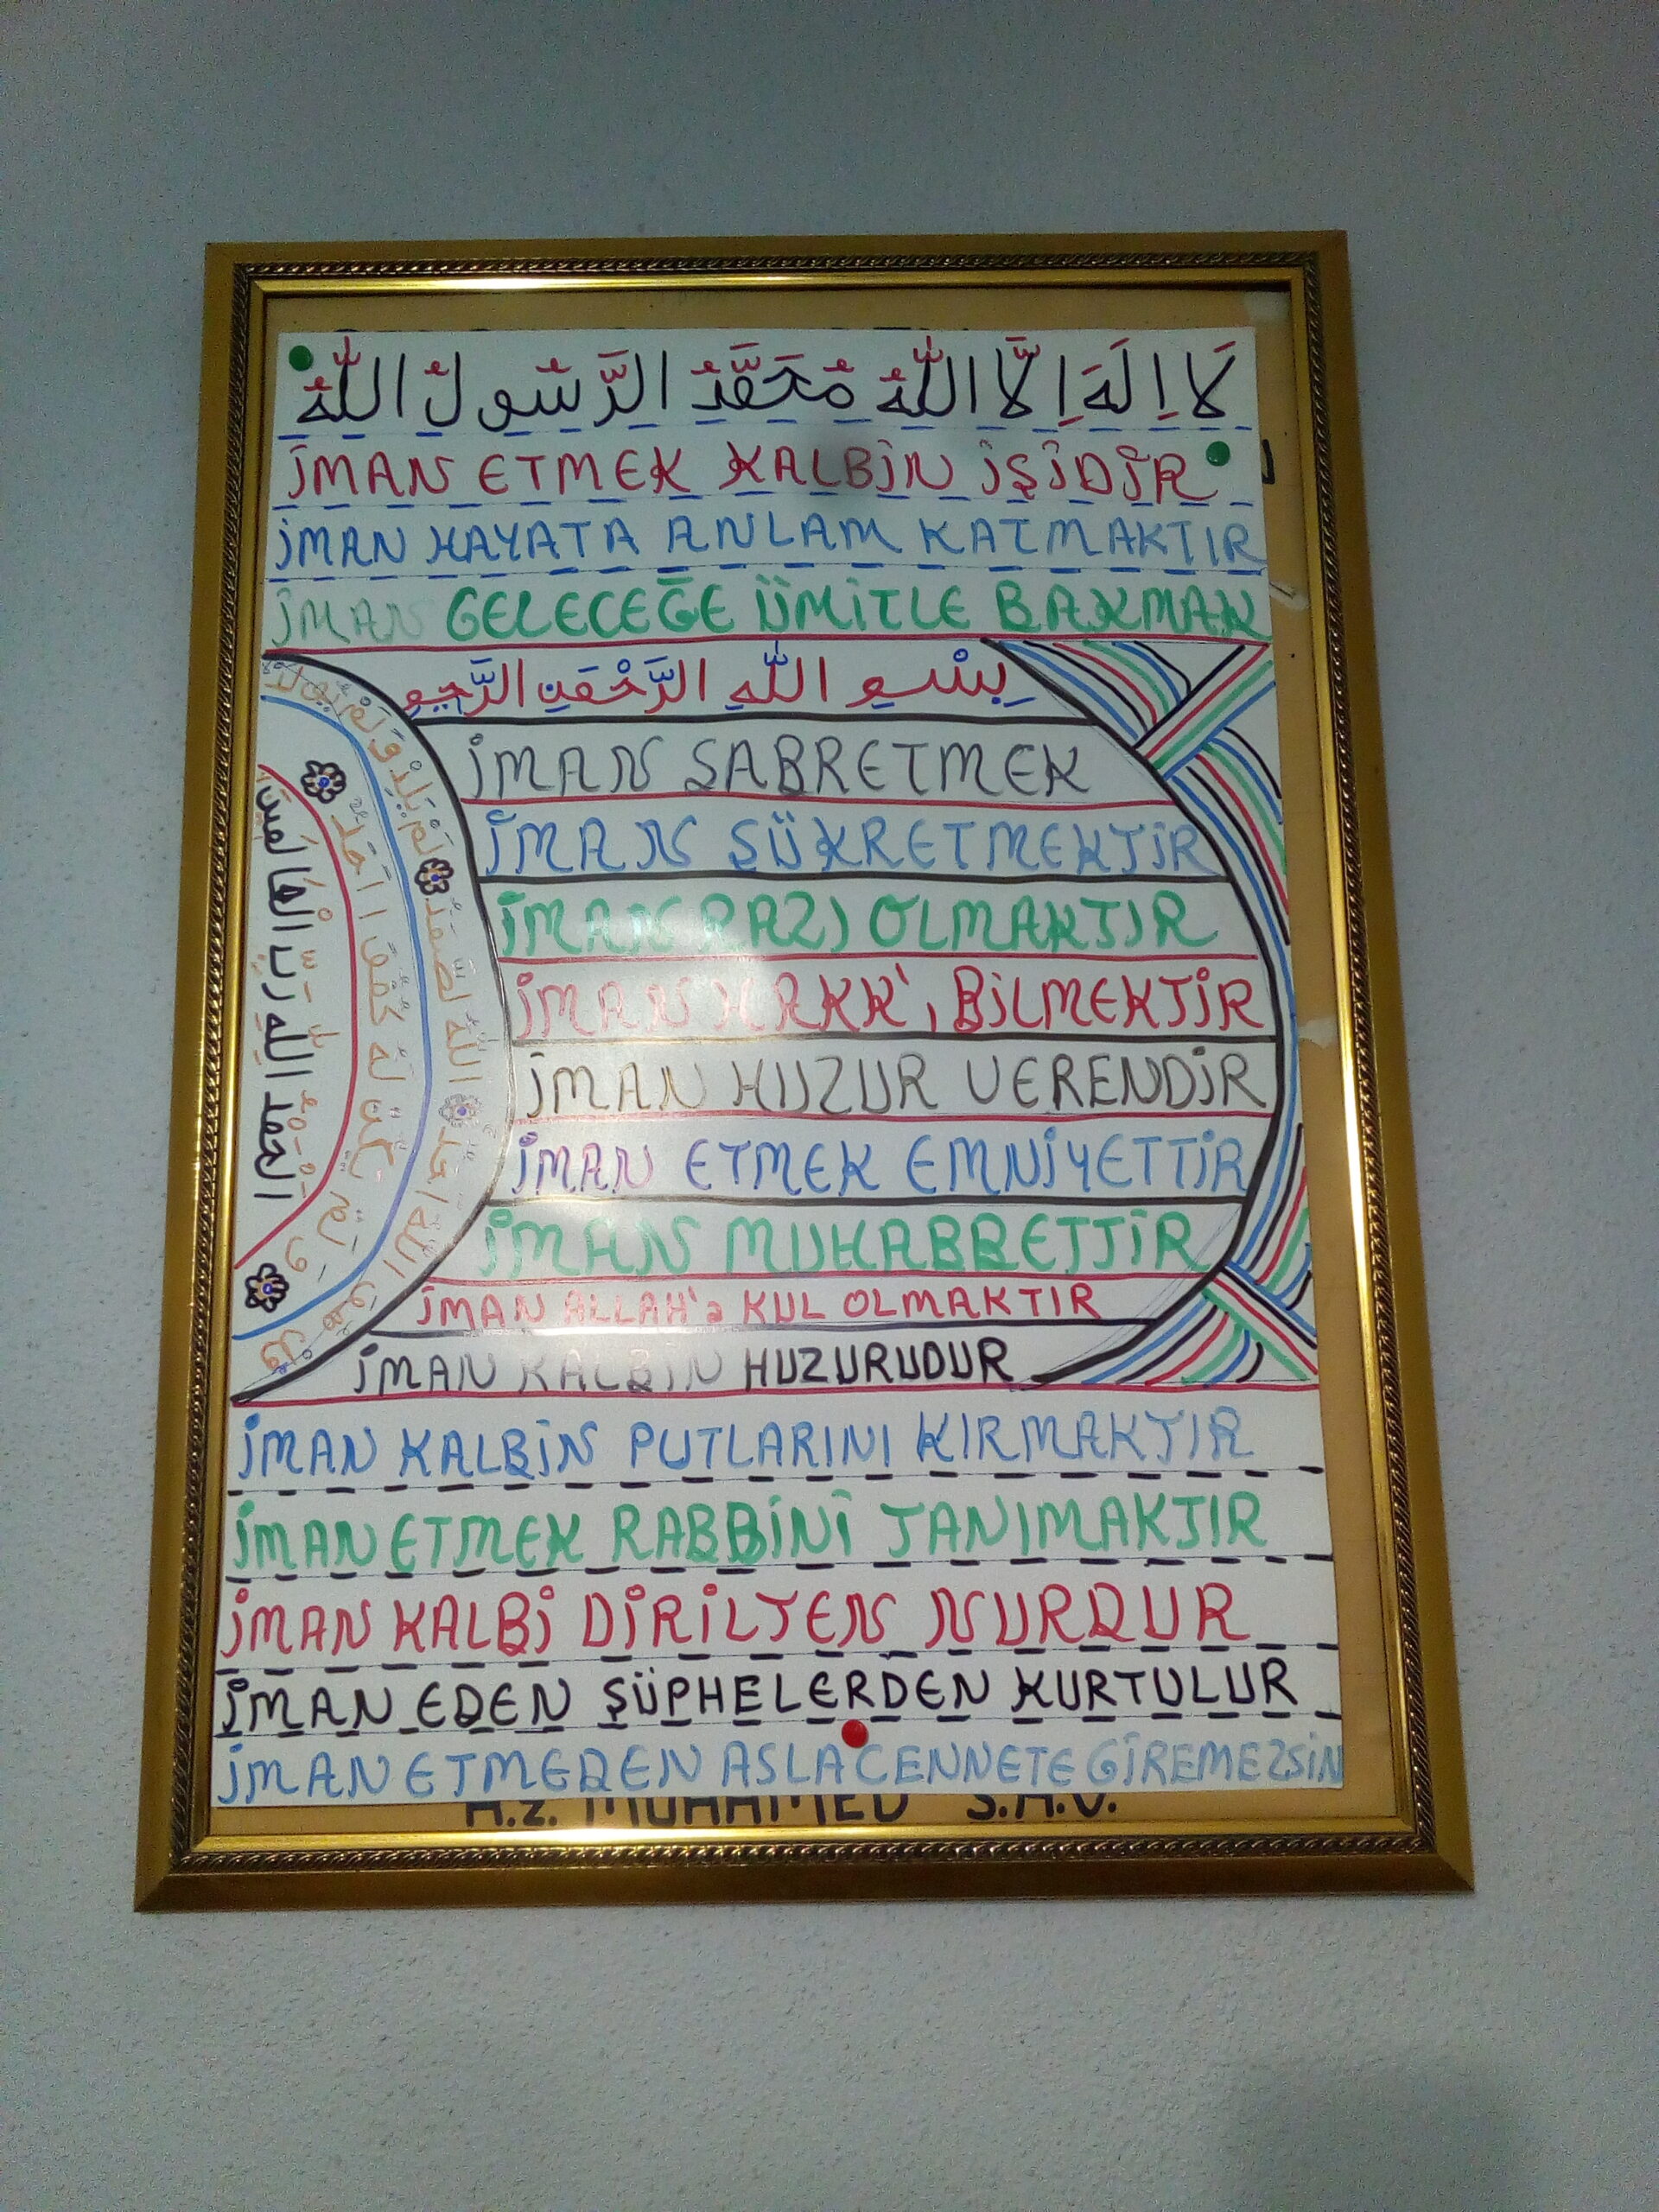 لَا اِلَهَ اِلَّا اللّٰهُ مُحَمَّدُ الرَّسُولُ اللّٰهُ
İMAN ETMEK KALBİN İŞİDİR
İMAN HAYATA ANLAM KATMAKTIR
İMAN GELECEĞE ÜMİTLE BAKMAK
بِسْمِ اللّٰهِ الرَّحْمَنِ الرَّحِيمِ
İMAN SABRETMEK
İMAN ŞÜKRETMEKTİR
İMAN RAZI OLMAKTIR
İMAN HAKK'I BİLMEKTİR
İMAN HUZUR VERENDİR
İMAN ETMEK EMNİYETTİR
İMAN MUHABBETTİR
İMAN ALLAH'a KUL OLMAKTIR
İMAN KALBİN HUZURUDUR
قل هو الله احد الله الصمد لم يلد ولم يولد
و لم يكن له كفوا احد
الحمد الله رب العالمين
İMAN KALBİN PUTLARINI KIRMAKTIR
İMAN ETMEK RABBİNİ TANIMAKTIR
İMAN KALBİ DİRİLTEN NURDUR
İMAN EDEN ŞÜPHELERDEN KURTULUR
İMAN ETMEDEN ASLA CENNETE GİREMEZSİN
H.z. MUHAMED S.A.V.